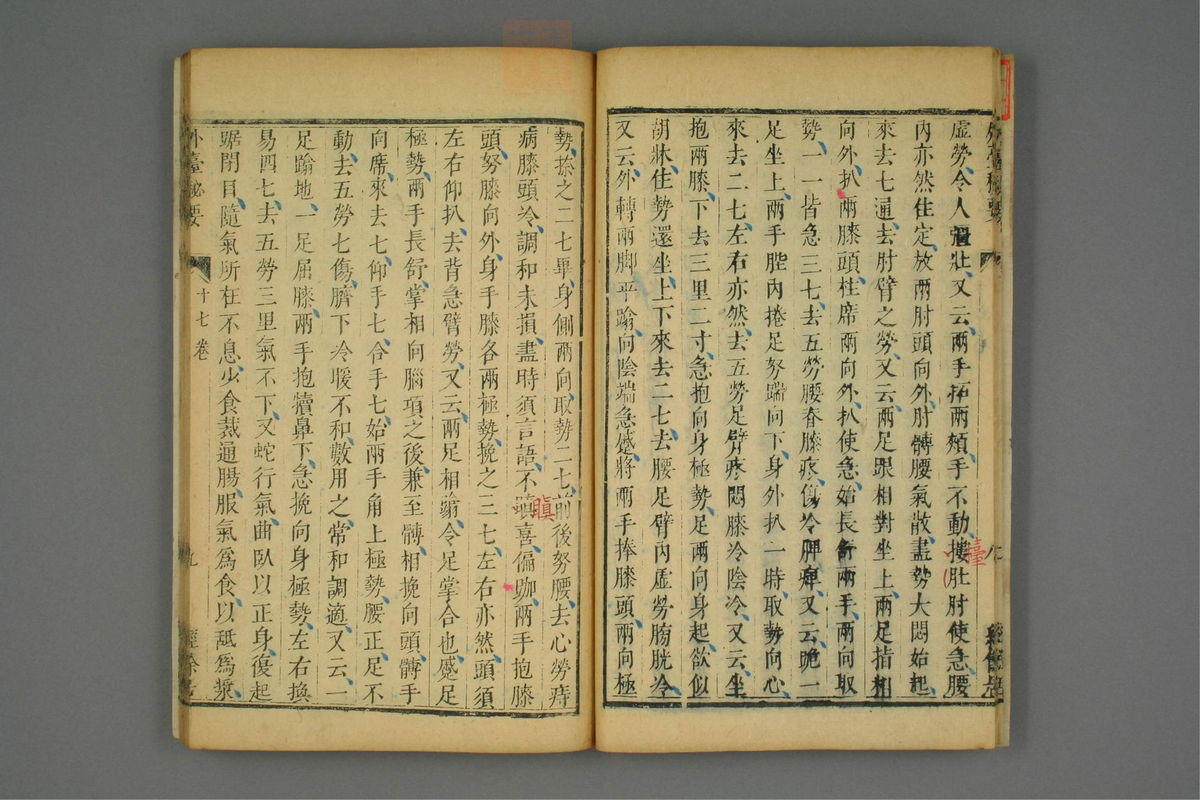 虛勞令人强壯又云兩手拓兩頰手不動摟肚肘使急腰
內亦然住定放兩肘頭向外肘髆腰氣散盡勢大悶始起
來去七通去肘臂之勞又云兩足跟相對坐上兩足指相
向外扒兩膝頭柱席兩向外扒使急始長舒兩手兩向取
勢一一皆急三七去五勞腰脊膝疼傷冷脾痺又云跪一
足坐上兩手䏶內捲足努踹向下身外扒一時取勢向心
來去二七左右亦然去五勞足臂疼悶膝冷陰冷又云坐
抱兩膝下去三里二寸急抱向身極勢足兩向身起欲似
胡牀住勢還坐上下來去二七去腰足臂內虛勞膀胱冷
又云外轉兩脚平踰向陰端急蹙將兩手捧膝頭兩向極
勢捺之二七畢身側兩向取勢二七前後努腰去心勞痔
病膝頭冷調和未損盡時須言語不嗔喜偏跏兩手抱膝
頭努膝向外身手膝各兩極勢挽之三七左右亦然頭須
左右仰扒去背急臂勞又云兩足相踰令足掌合也蹙足
極勢兩手長舒掌相向腦項之後兼至髆相挽向頭髆手
向席來去七仰手七合手七始兩手角上極勢腰正足不
動去五勞七傷臍下冷暖不和數用之常和調適又云一
足踰地一足屈膝兩手抱犢鼻下急挽向身極勢左右換
易四七去五勞三里氣不下又蛇行氣曲臥以正身復起
踞閉目隨氣所在不息少食裁通腸服氣爲食以舐爲漿
外臺秘要
十七卷
九
經餘居
臺
瞋